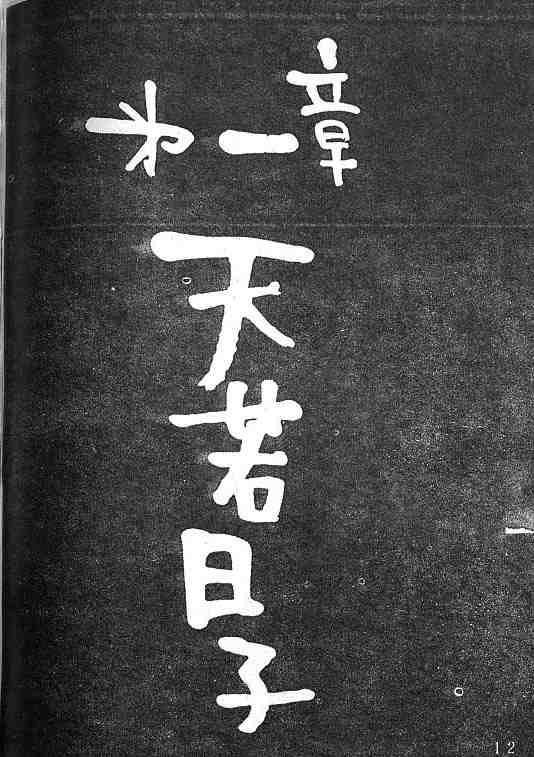 第一章
天若日子
12